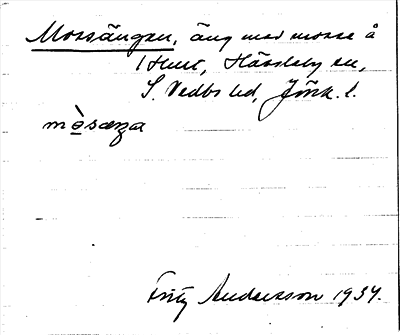 Mossängen, äng med mosse å
1 Hem., Hässleby sn,
S. Vedbo hd, Jönk. l.
mòsæŋa
Fritz Andersson 1934.